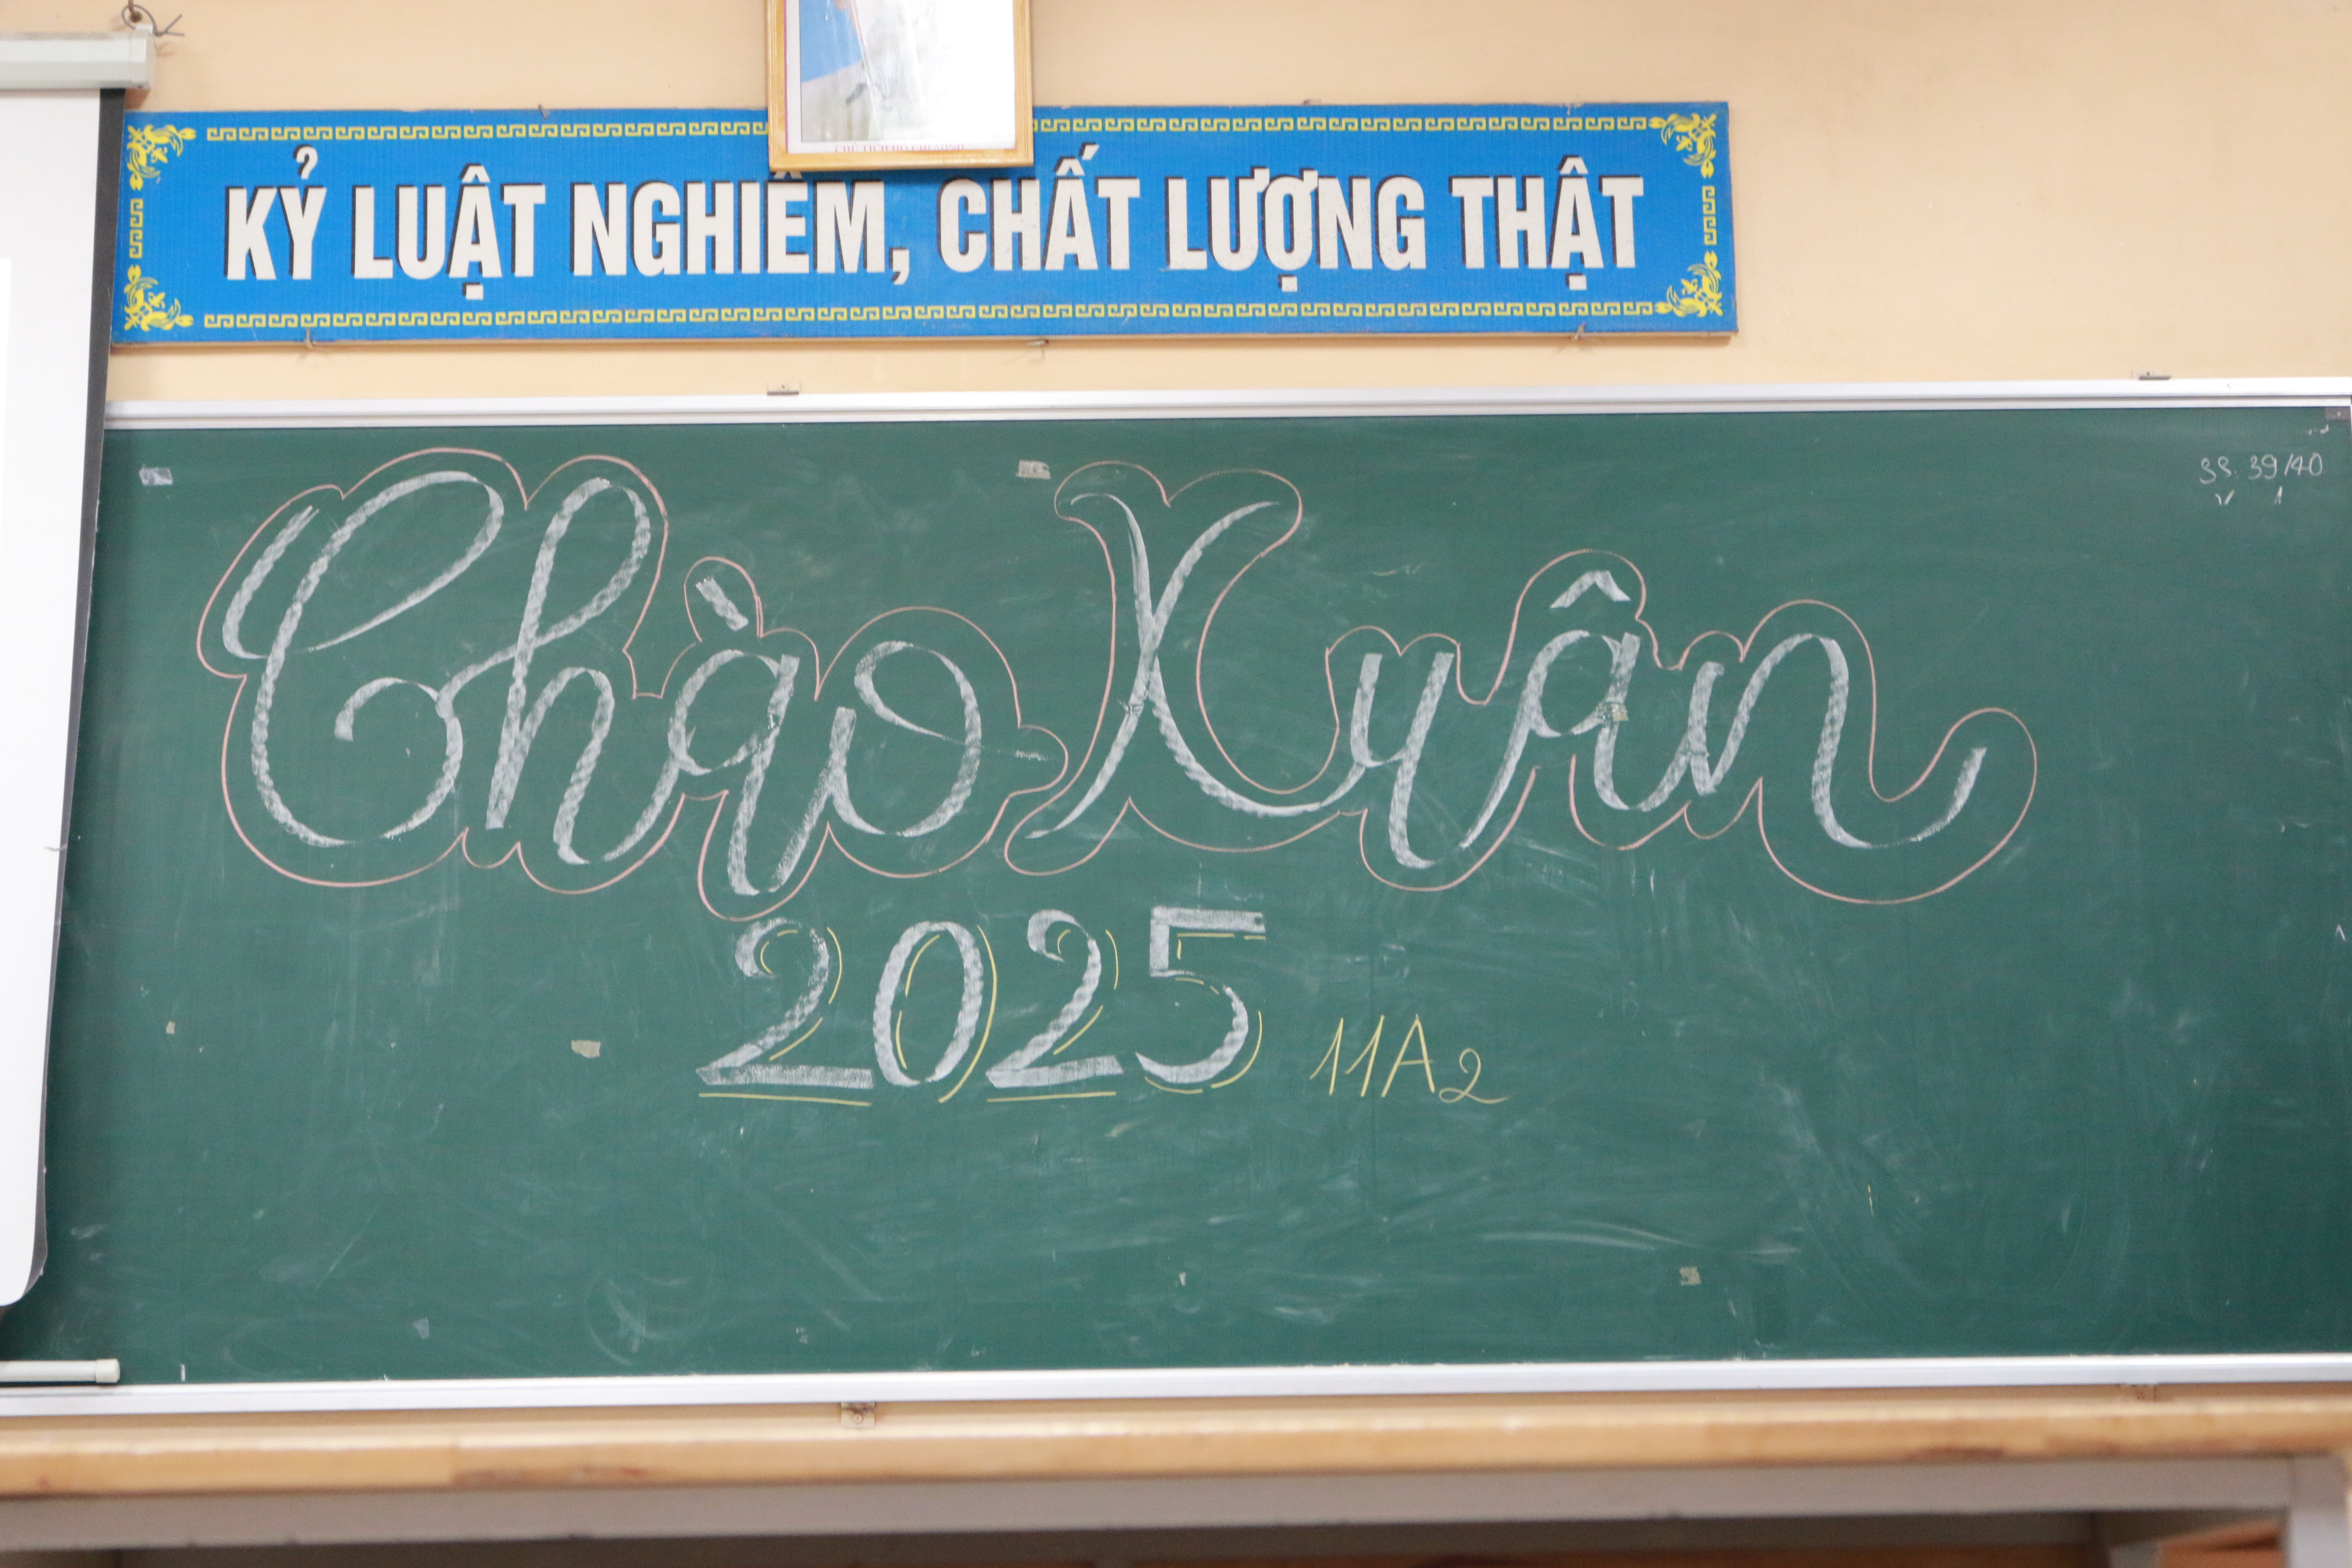 KỶ LUẬT NGHIÊM, CHẤT LƯỢNG THẬT
SS: 39/40
V 1
Chào Xuân
2025
11A2